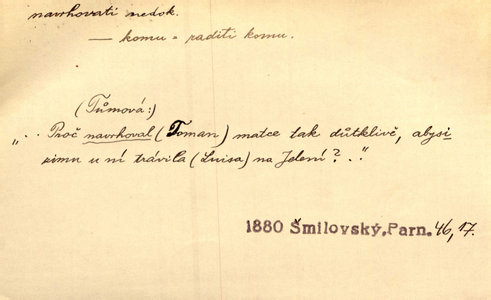 navrhovati nedok.
— komu = raditi komu.
(Tůmová:)
„.. Proč navrhoval (Toman) matce tak důtklivě, abysi
zimu u ní trávila (Luisa) na Jelení?.."
1880 Šmilovský, Parn. 46, 17.